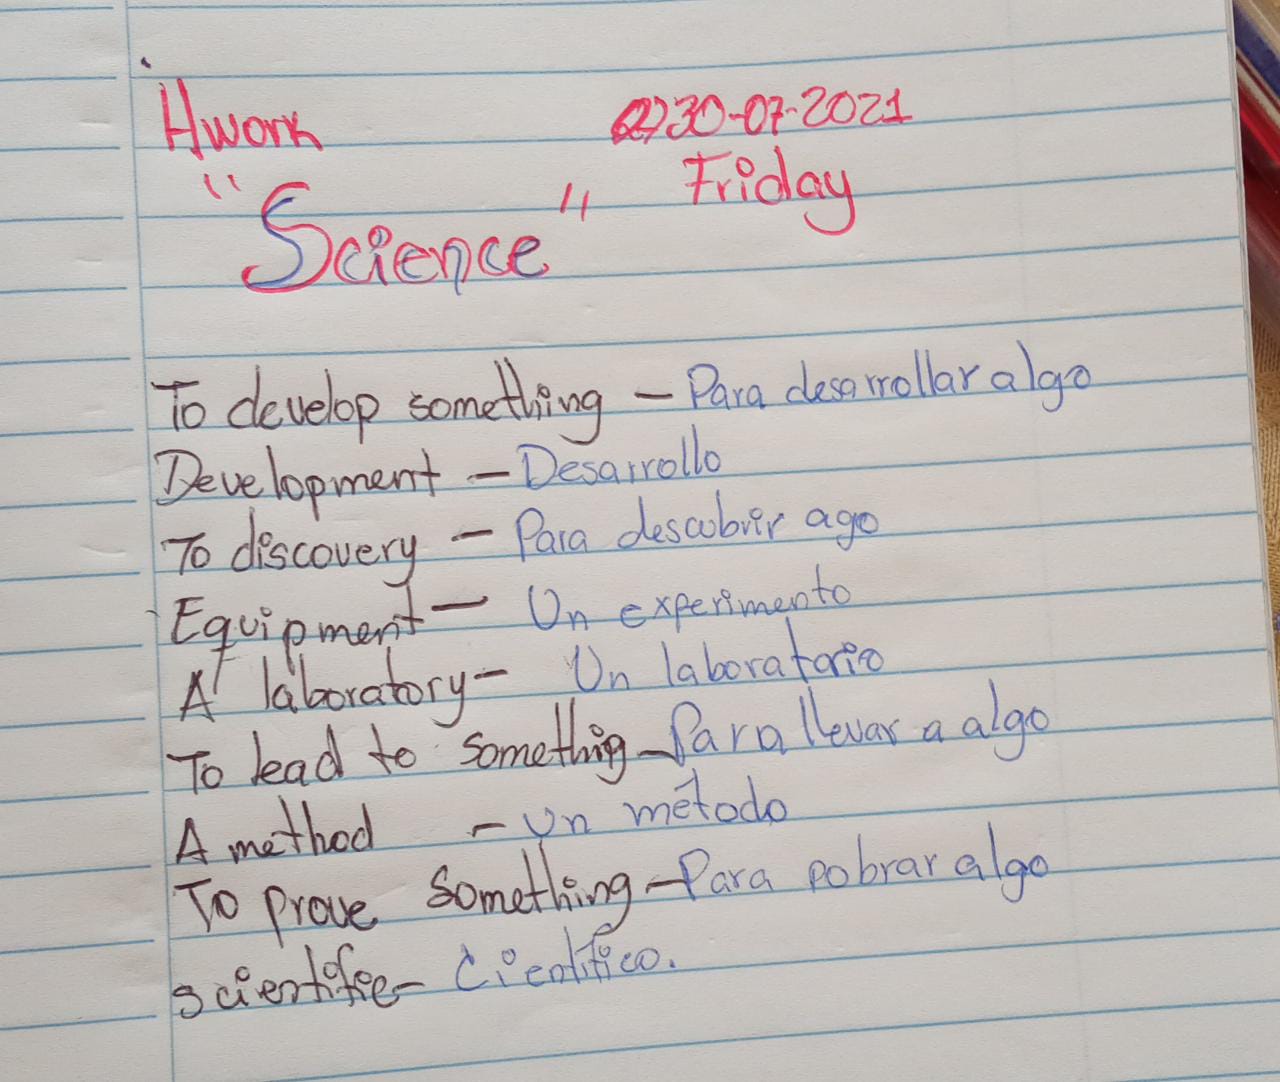 Hwork
30-07-2021
Friday
"Science"
To develop something - Para desarrollar algo
Development - Desarrollo
To discovery - Para descubrir ago
Equipment - Un experimento
A laboratory - Un laboratorio
To lead to something - Para llevar a algo
A method - Un método
To prove something - Para pobrar algo
scientific - Científico.